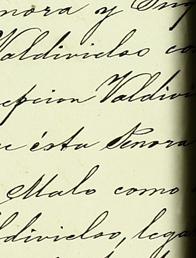 nora y Em
Valdivielso co
epcion Valdivi
e ésta Senora
Malo como
ldivielso, lega